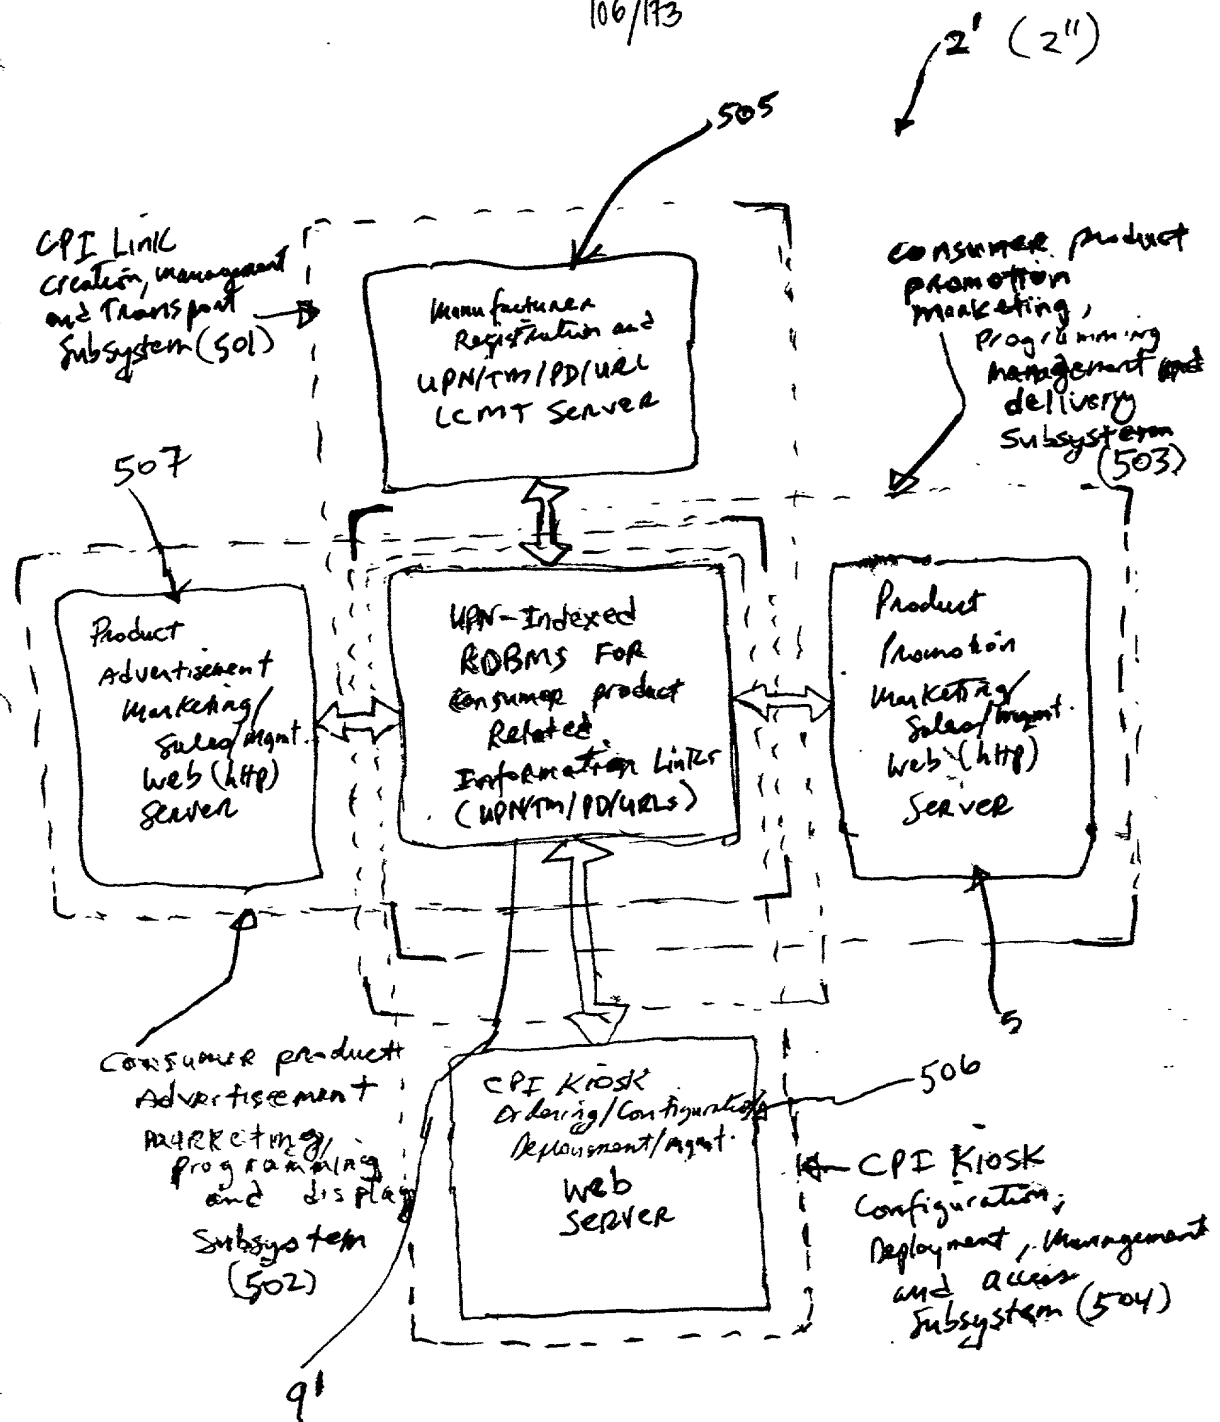 106/173
2' (2")
505
CPI Link
Creation, management
and Transport
Subsystem (501)
Manufacturer
Registration and
UPN/TM/PD/URL
LCMT SERVER
CONSUMER product
promotion
marketing,
Programming
management and
delivery
Subsystem
(503)
507
Product
Advertisement
Marketing/
Sales/mgmt.
Web (http)
Server
UPN-Indexed
RDBMS FOR
Consumer product
Related
Information Links
(UPN/TM/PD/URLs)
Product
Promotion
Marketing/
Sales/mgmt.
Web (http)
Server
5
Consumer product
Advertisement
Marketing,
programming
and display
Subsystem
(502)
CPI Kiosk
Ordering/Configuration/
Deployment/Mgmt.
Web
Server
506
CPI Kiosk
Configuration,
Deployment, Management
and access
Subsystem (504)
9'